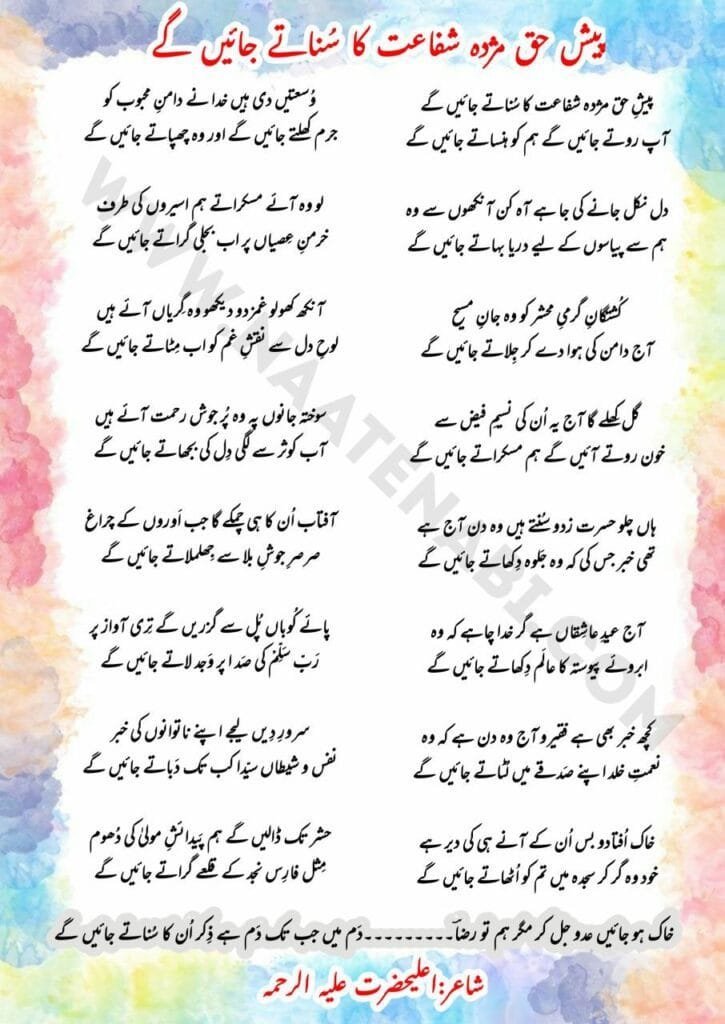 پیش حق مژدہ شفاعت کا سُناتے جائیں گے
پیشِ حق مژدہ شفاعت کا سُناتے جائیں گے
آپ روتے جائیں گے ہم کو ہنساتے جائیں گے
دل نکل جانے کی جا ہے آہ کن آنکھوں سے وہ
ہم سے پیاسوں کے لیے دریا بہاتے جائیں گے
کُشتگانِ گرمیِ محشر کو وہ جانِ مسیح
آج دامن کی ہوا دے کر جِلاتے جائیں گے
گل کھلے گا آج یہ اُن کی نسیمِ فیض سے
خون روتے آئیں گے ہم مسکراتے جائیں گے
ہاں چلو حسرت زدو سُنتے ہیں وہ دن آج ہے
تھی خبر جس کی کہ وہ جَلوہ دِکھاتے جائیں گے
آج عیدِ عاشِقاں ہے گر خدا چاہے کہ وہ
ابروئے پیوستہ کا عالَم دِکھاتے جائیں گے
کچھ خبر بھی ہے فقیرو آج وہ دن ہے کہ وہ
نعمتِ خلد اپنے صَدقے میں لٹاتے جائیں گے
خاک اُفتادو بس اُن کے آنے ہی کی دیر ہے
خود وہ گر کر سجدہ میں تم کو اُٹھاتے جائیں گے
وُسعتیں دی ہیں خدا نے دامنِ محبوب کو
جرم کھلتے جائیں گے اور وہ چھپاتے جائیں گے
لو وہ آئے مسکراتے ہم اسیروں کی طرف
خرمنِ عِصیاں پر اب بجلی گراتے جائیں گے
آنکھ کھولو غمزدو دیکھو وہ گِریاں آئے ہیں
لوحِ دل سے نقشِ غم کو اب مِٹاتے جائیں گے
سوختہ جانوں پہ وہ پُر جوش رحمت آئے ہیں
آب کوثر سے لگی دِل کی بجھاتے جائیں گے
آفتاب اُن کا ہی چمکے گا جب اَوروں کے چراغ
صرصرِ جوشِ بلا سے جِھلملاتے جائیں گے
پائے کُوباں پُل سے گزریں گے تِری آواز پر
رَبِّ سَلِّمْ کی صَدا پر وَجد لاتے جائیں گے
سرورِ دِیں لیجے اپنے ناتوانوں کی خبر
نفس و شیطاں سیّدا کب تک دَباتے جائیں گے
حشر تک ڈالیں گے ہم پَیدائشِ مولیٰ کی دُھوم
مِثلِ فارِس نجد کے قلعے گراتے جائیں گے
خاک ہو جائیں عدو جل کر مگر ہم تو رضاؔ۔۔۔۔۔۔۔۔۔دَم میں جب تک دَم ہے ذِکر اُن کا سُناتے جائیں گے
شاعر:اعلیحضرت علیہ الرحمہ
WWW.NAATENABI.COM